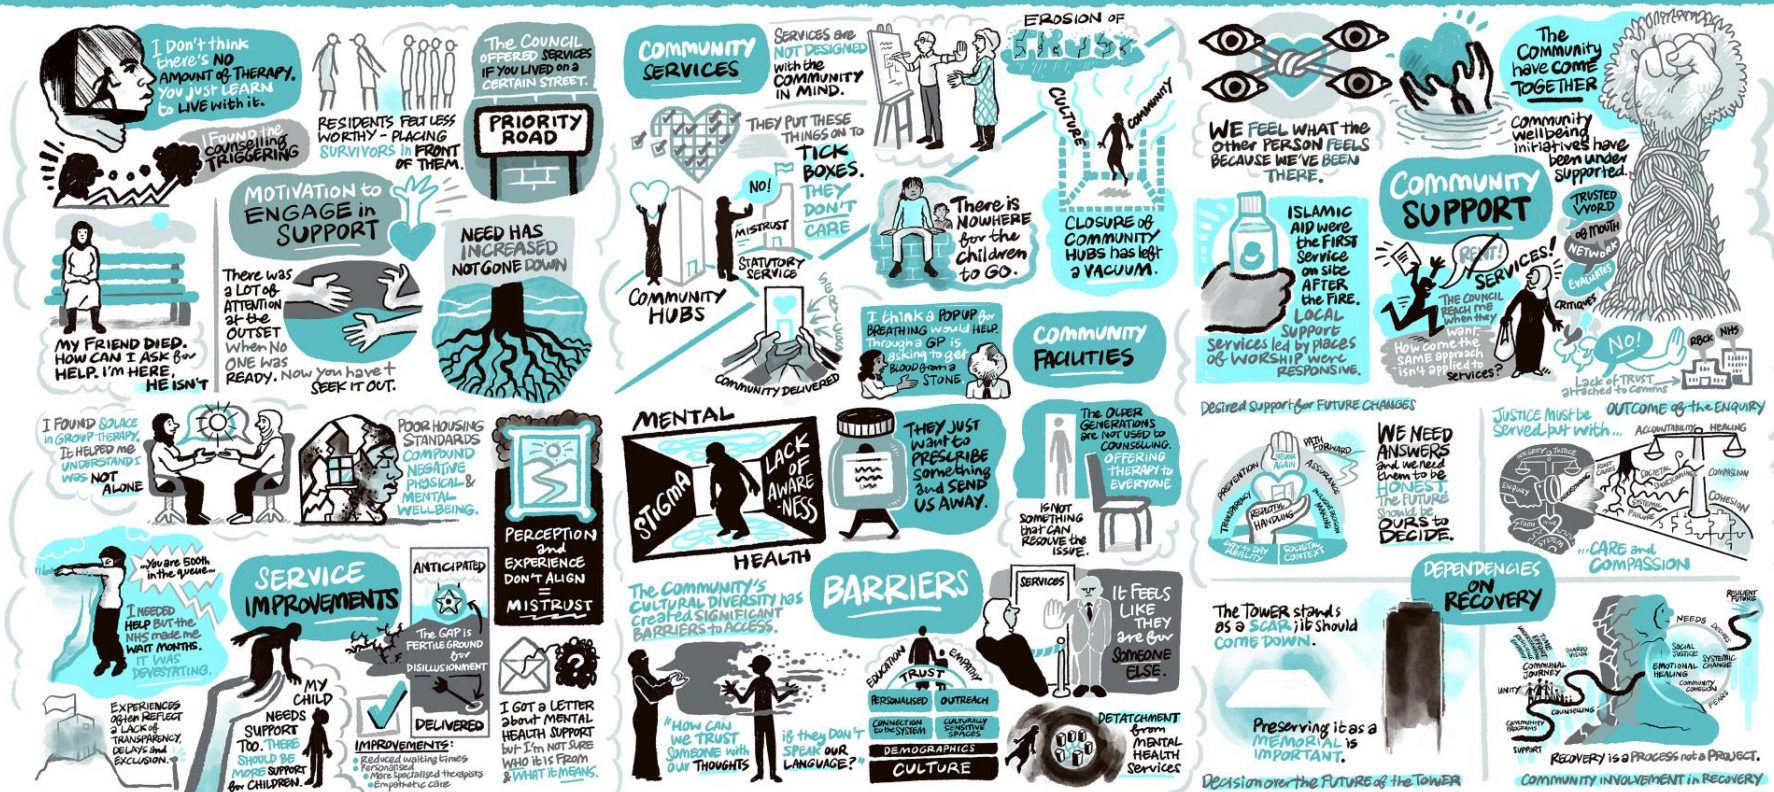 I DON'T think
there's NO
AMOUNT of THERAPY.
You just LEARN
to LIVE with it.
I FOUND the
counselling
TRIGGERING
RESIDENTS FELT LESS
WORTHY - PLACING
SURVIVORS in FRONT
OF THEM.
The COUNCIL
OFFERED SERVICES
IF YOU LIVED on a
CERTAIN STREET.
PRIORITY
ROAD
MOTIVATION to
ENGAGE in
SUPPORT
MY FRIEND DIED.
HOW CAN I ASK for
HELP. I'M HERE,
HE ISN'T
There was
a LOT of
ATTENTION
at the
OUTSET
when NO
ONE was
READY. Now you have t
SEEK IT OUT.
NEED HAS
INCREASED
NOT GONE DOWN
I FOUND SOLACE
in GROUP THERAPY.
It HELPED me
UNDERSTAND I
was NOT
ALONE
POOR HOUSING
STANDARDS
COMPOUND
NEGATIVE
PHYSICAL &
MENTAL
WELLBEING.
PERCEPTION
and
EXPERIENCE
DON'T ALIGN
=
MISTRUST
...You are 500th
in the queue...
I NEEDED
HELP BUT the
NHS made me
WAIT MONTHS.
IT WAS
DEVESTATING.
SERVICE
IMPROVEMENTS
ANTICIPATED
The GAP is
FERTILE GROUND
for
DISILLUSIONMENT
DELIVERED
EXPERIENCES
often REFLECT
a LACK of
TRANSPARENCY,
DELAYS and
EXCLUSION.
MY
CHILD
NEEDS
SUPPORT
TOO. THERE
SHOULD BE
MORE SUPPORT
for CHILDREN.
IMPROVEMENTS:
• Reduced waiting times
• Personalised
• More specialised therapists
• Empathetic care
I GOT a LETTER
about MENTAL
HEALTH SUPPORT
but I'M NOT SURE
WHO it is FROM
& WHAT it MEANS.
COMMUNITY
SERVICES
SERVICES are
NOT DESIGNED
with the
COMMUNITY
IN MIND.
THEY PUT THESE
THINGS ON TO
TICK
BOXES.
THEY
DON'T
CARE
NO!
MISTRUST
STATUTORY
SERVICE
COMMUNITY
HUBS
SERVICES
COMMUNITY DELIVERED
EROSION OF
TRUST
CULTURE
COMMUNITY
There is
NOWHERE
for the
children
to GO.
CLOSURE of
COMMUNITY
HUBS has left
a VACUUM.
I think a POPUP for
BREATHING would HELP.
Through a GP is
asking to get
BLOOD from a
STONE.
COMMUNITY
FACILITIES
MENTAL
STIGMA
LACK
OF
AWARE
-NESS
HEALTH
THEY JUST
want to
PRESCRIBE
something
and SEND
US AWAY.
The OLDER
GENERATIONS
are NOT USED to
COUNSELLING.
OFFERING
THERAPY to
EVERYONE
IS NOT
SOMETHING
that CAN
RESOLVE the
ISSUE.
The COMMUNITY'S
CULTURAL DIVERSITY has
created SIGNIFICANT
BARRIERS to ACCESS.
BARRIERS
SERVICES
IT FEELS
LIKE
THEY
are for
SOMEONE
ELSE.
"HOW CAN
WE TRUST
SOMEONE with
OUR THOUGHTS
if they DON'T
SPEAK OUR
LANGUAGE?"
EDUCATION
EMPATHY
TRUST
PERSONALISED
OUTREACH
CONNECTION
to the SYSTEM
CULTURALLY
SENSITIVE
SPACES
DEMOGRAPHICS
CULTURE
DETATCHMENT
from
MENTAL
HEALTH
Services
WE FEEL WHAT the
other PERSON FEELS
BECAUSE WE'VE BEEN
THERE.
The
Community
have COME
TOGETHER
Community
wellbeing
initiatives have
been under
supported.
COMMUNITY
SUPPORT
TRUSTED
WORD
of MOUTH
NETWORK
EVALUATES
CRITIQUES
ISLAMIC
AID were
the FIRST
Service
on site
AFTER
the FIRE.
LOCAL
support
services led by places
of WORSHIP were
RESPONSIVE.
RENT!
SERVICES!
THE COUNCIL
REACH ME
when they
want.
How come the
SAME approach
isn't applied to
services?
NO!
RBCK
NHS
Lack of TRUST
attached to comms
Desired support for FUTURE CHANGES
PATH
FORWARD
NEVER
AGAIN
PREVENTION
ASSURANCE
TRANSPARENCY
RESPECTFUL
HANDLING
DAY to DAY
REALITY
SOCIETAL
CONTEXT
WE NEED
ANSWERS
and we need
them to be
HONEST
The FUTURE
should be
OURS to
DECIDE.
JUSTICE Must be
Served but with...
OUTCOME of the ENQUIRY
ACCOUNTABILITY
HEALING
INTEGRITY
JUSTICE
ENQUIRY
ROOT
CAUSES
SOCIETAL
SHORTCOMINGS
COMPASSION
SYSTEMIC
FAILURE
COHESION
FAITH
in the
SYSTEM
...CARE and
COMPASSION
DEPENDENCIES
ON
RECOVERY
The TOWER stands
as a SCAR; it should
COME DOWN.
Preserving it as a
MEMORIAL is
IMPORTANT.
Decision over the FUTURE of the TOWER
RESILIENT
FUTURE
NEEDS
DESIRES
SHARED
VISION
SOCIAL
JUSTICE
SYSTEMIC
CHANGE
COMMUNAL
JOURNEY
EMOTIONAL
HEALING
COMMUNITY
COHESION
FEARS
UNITY
COUNSELLING
COMMUNITY
PROGRAMS
SUPPORT
RECOVERY is a PROCESS not a PROJECT.
COMMUNITY INVOLVEMENT in RECOVERY